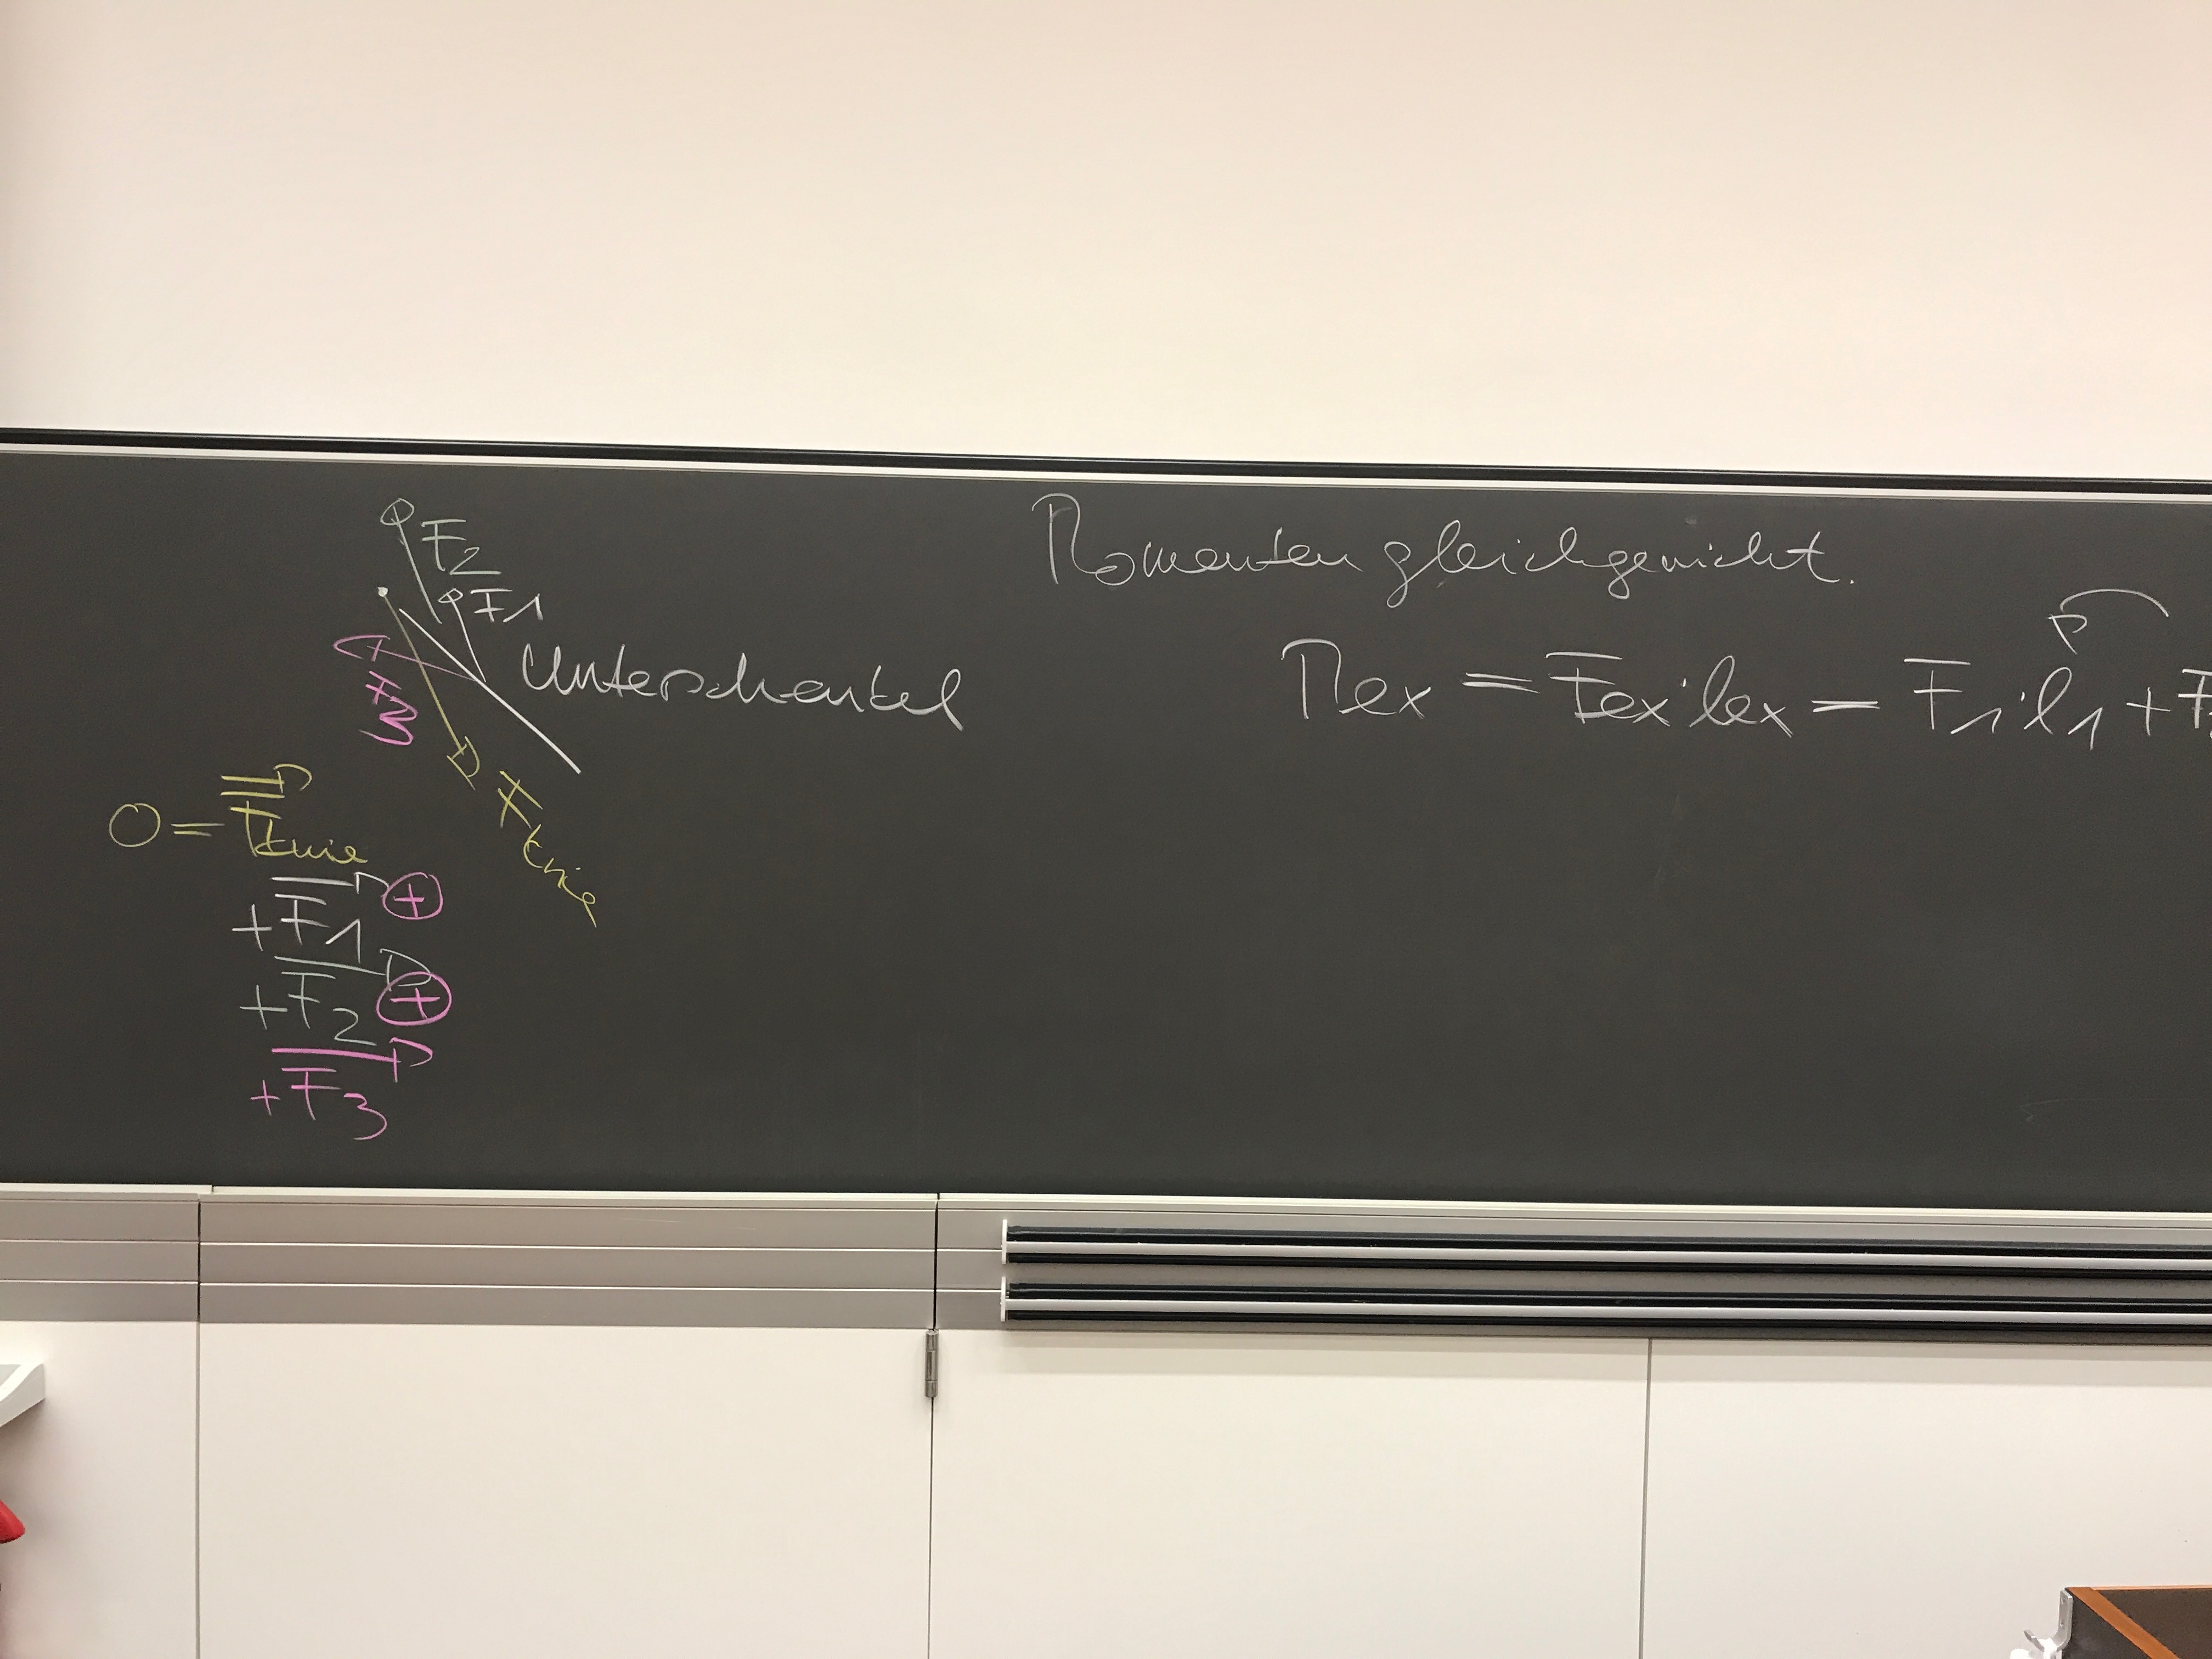 F2
F1
Unterschenkel
F3
F Knie
0 = F Knie
+ F1 +
+ F2 +
+ F3
Momentengleichgewicht.
Mex = Fex · lex − F1 · l1 + F